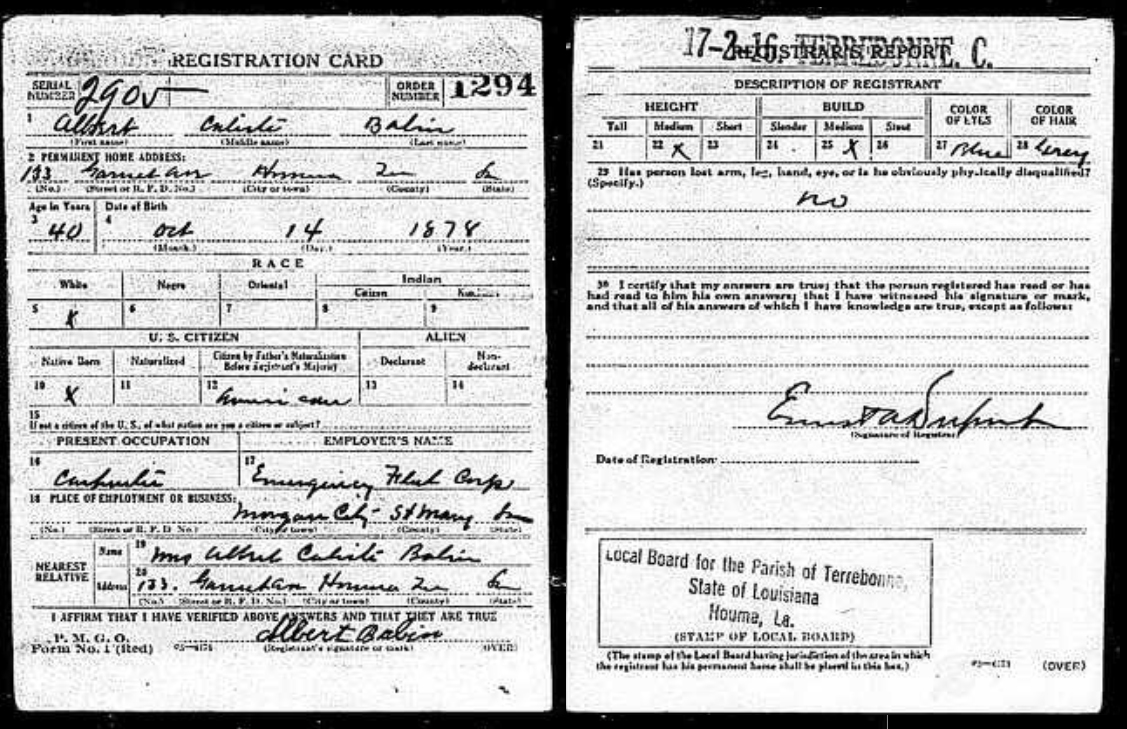 REGISTRATION CARD
SERIAL NUMBER 2905 ORDER NUMBER 1294
1 Albert Caliste Babin
(First name) (Middle name) (Last name)
2 PERMANENT HOME ADDRESS:
133 Houma La
(No.) (Street or R. F. D. No.) (City or town) (County) (State)
Age in Years Date of Birth
3 40 4 Oct 14 1878
(Month.) (Day.) (Year.)
RACE
White Negro Oriental Indian
Citizen
5 X 6 7 8 9
U. S. CITIZEN ALIEN
Native Born Naturalized Citizen by Father's Naturalization Before Registrant's Majority Declarant Non-declarant
10 X 11 12 13 14
15
If not a citizen of the U. S., of what nation are you a citizen or subject?
PRESENT OCCUPATION EMPLOYER'S NAME
16 Carpenter 17 Emergency Fleet Corp
18 PLACE OF EMPLOYMENT OR BUSINESS:
Morgan City St Mary La
(No.) (Street or R. F. D. No.) (City or town) (County) (State)
NEAREST RELATIVE Name 19 Mrs Albert Caliste Babin
Address 20 133. Houma La
(No.) (Street or R. F. D. No.) (City or town) (County) (State)
I AFFIRM THAT I HAVE VERIFIED ABOVE ANSWERS AND THAT THEY ARE TRUE
Albert Babin
P. M. G. O.
Form No. 1 (Red) (Registrant's signature or mark) (OVER)
17-2-16 TERREBONNE. C.
REGISTRAR'S REPORT
DESCRIPTION OF REGISTRANT
HEIGHT BUILD COLOR OF EYES COLOR OF HAIR
Tall Medium Short Slender Medium Stout
21 22 X 23 24 25 X 26 27 Blue 28 Grey
29 Has person lost arm, leg, hand, eye, or is he obviously physically disqualified?
(Specify.)
no
30 I certify that my answers are true; that the person registered has read or has
had read to him his own answers; that I have witnessed his signature or mark,
and that all of his answers of which I have knowledge are true, except as follows:
(Signature of Registrar)
Date of Registration
Local Board for the Parish of Terrebonne,
State of Louisiana
Houma, La.
(STAMP OF LOCAL BOARD)
(The stamp of the Local Board having jurisdiction of the area in which
the registrant has his permanent home shall be placed in this box.)
(OVER)